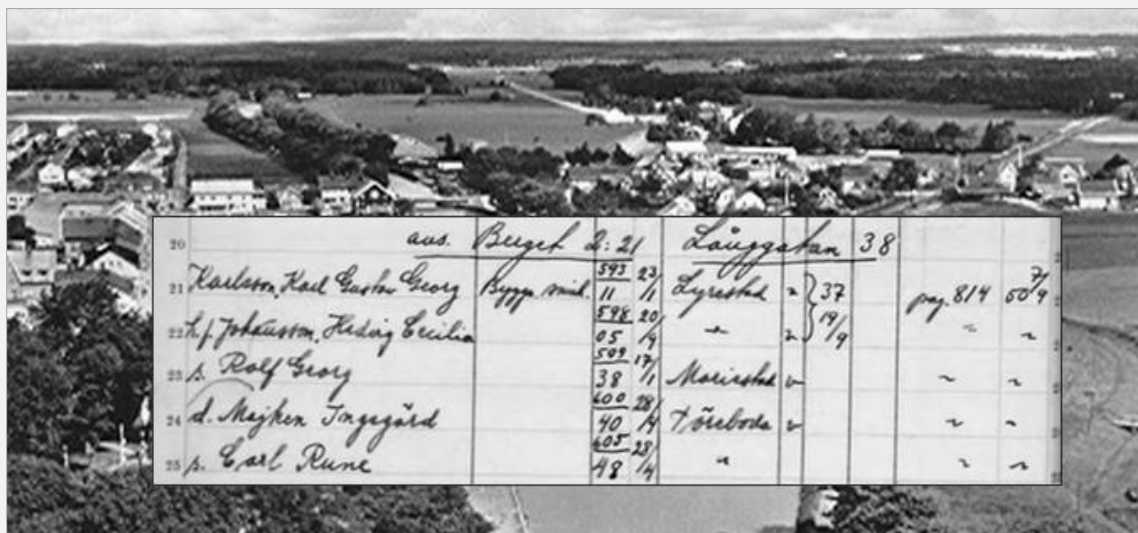 20 avs. Berget 2:21 Långgatan 38
21 Karlsson, Karl Gustav Georg Byggn. snick. 593 11 23/1 Lyrestad v 37 19/9 pag. 814 7/9 50
22 h.f. Johansson, Hedvig Cecilia 598 05 20/9 " v " "
23 s. Rolf Georg 509 38 17/1 Mariestad v " "
24 d. Majken Ingegärd 600 40 28/4 Töreboda v " "
25 s. Carl Rune 605 48 28/4 " " "